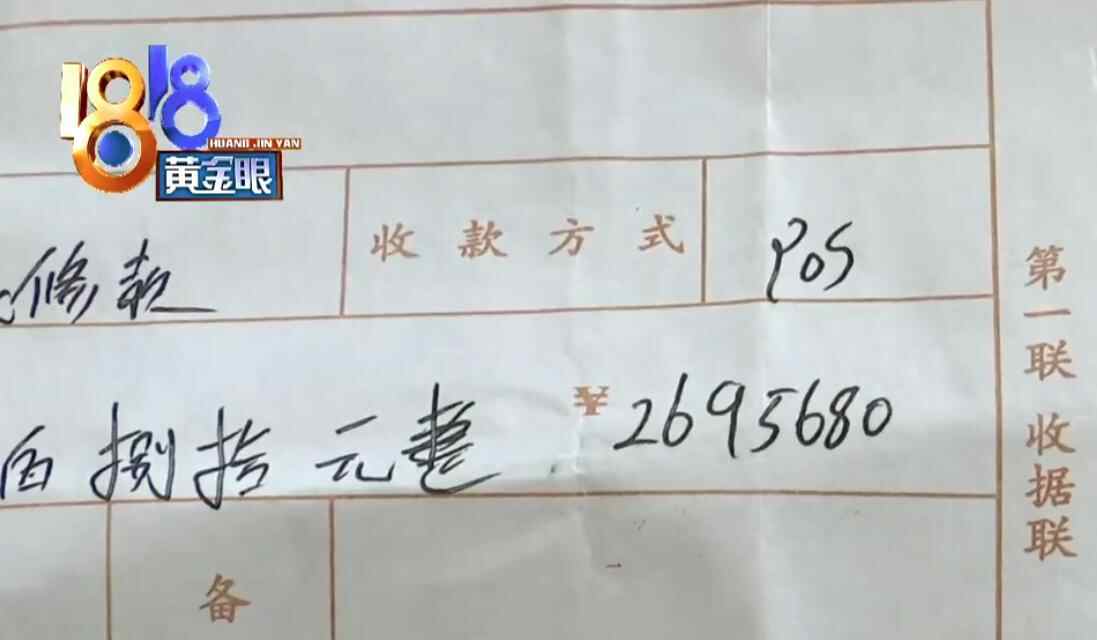 1818
HUANG JIN YAN
黄金眼
修款 收款方式 POS
百捌拾元整 ¥2695680
备
第一联 收据联